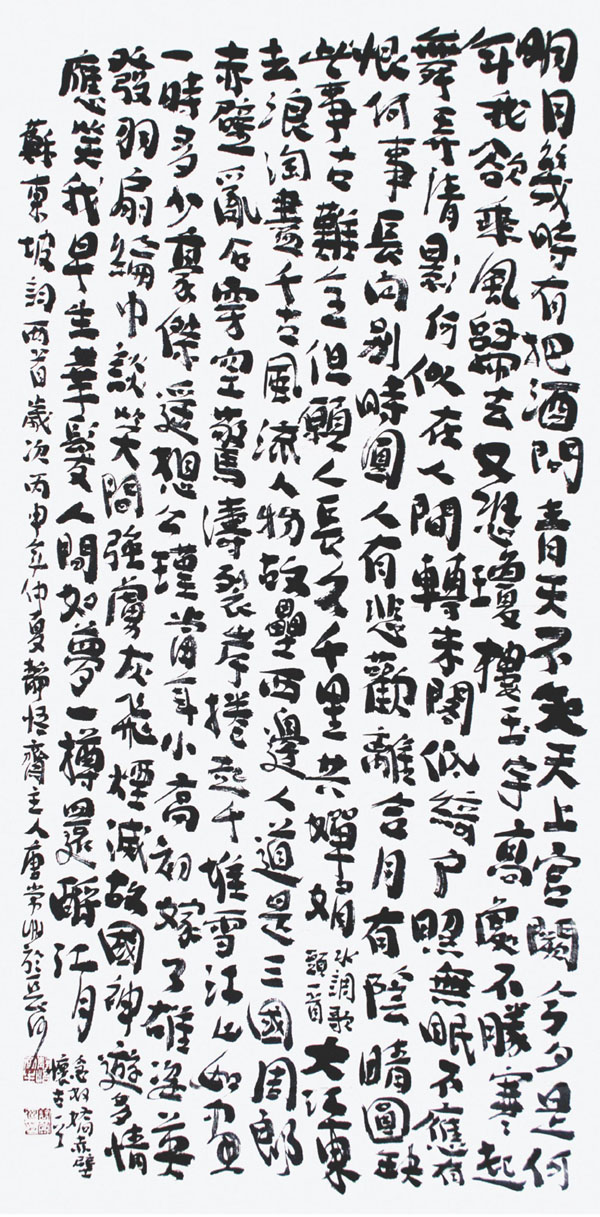 明月幾時有把酒問青天不知天上宮闕今夕是何
年我欲乘風歸去又恐瓊樓玉宇高處不勝寒起
舞弄清影何似在人間轉朱閣低綺戶照無眠不應有
恨何事長向別時圓人有悲歡離合月有陰晴圓缺
此事古難全但願人長久千里共嬋娟
水調歌
頭一首
大江東
去浪淘盡千古風流人物故壘西邊人道是三國周郎
赤壁亂石穿空驚濤裂岸捲起千堆雪江山如畫
一時多少豪傑遙想公瑾當年小喬初嫁了雄姿英
發羽扇綸巾談笑間強虜灰飛煙滅故國神遊多情
應笑我早生華髮人間如夢一樽還酹江月
念奴嬌赤壁
懷古一首
蘇東坡詞兩首歲次丙申年仲夏靜悟齋主人唐常